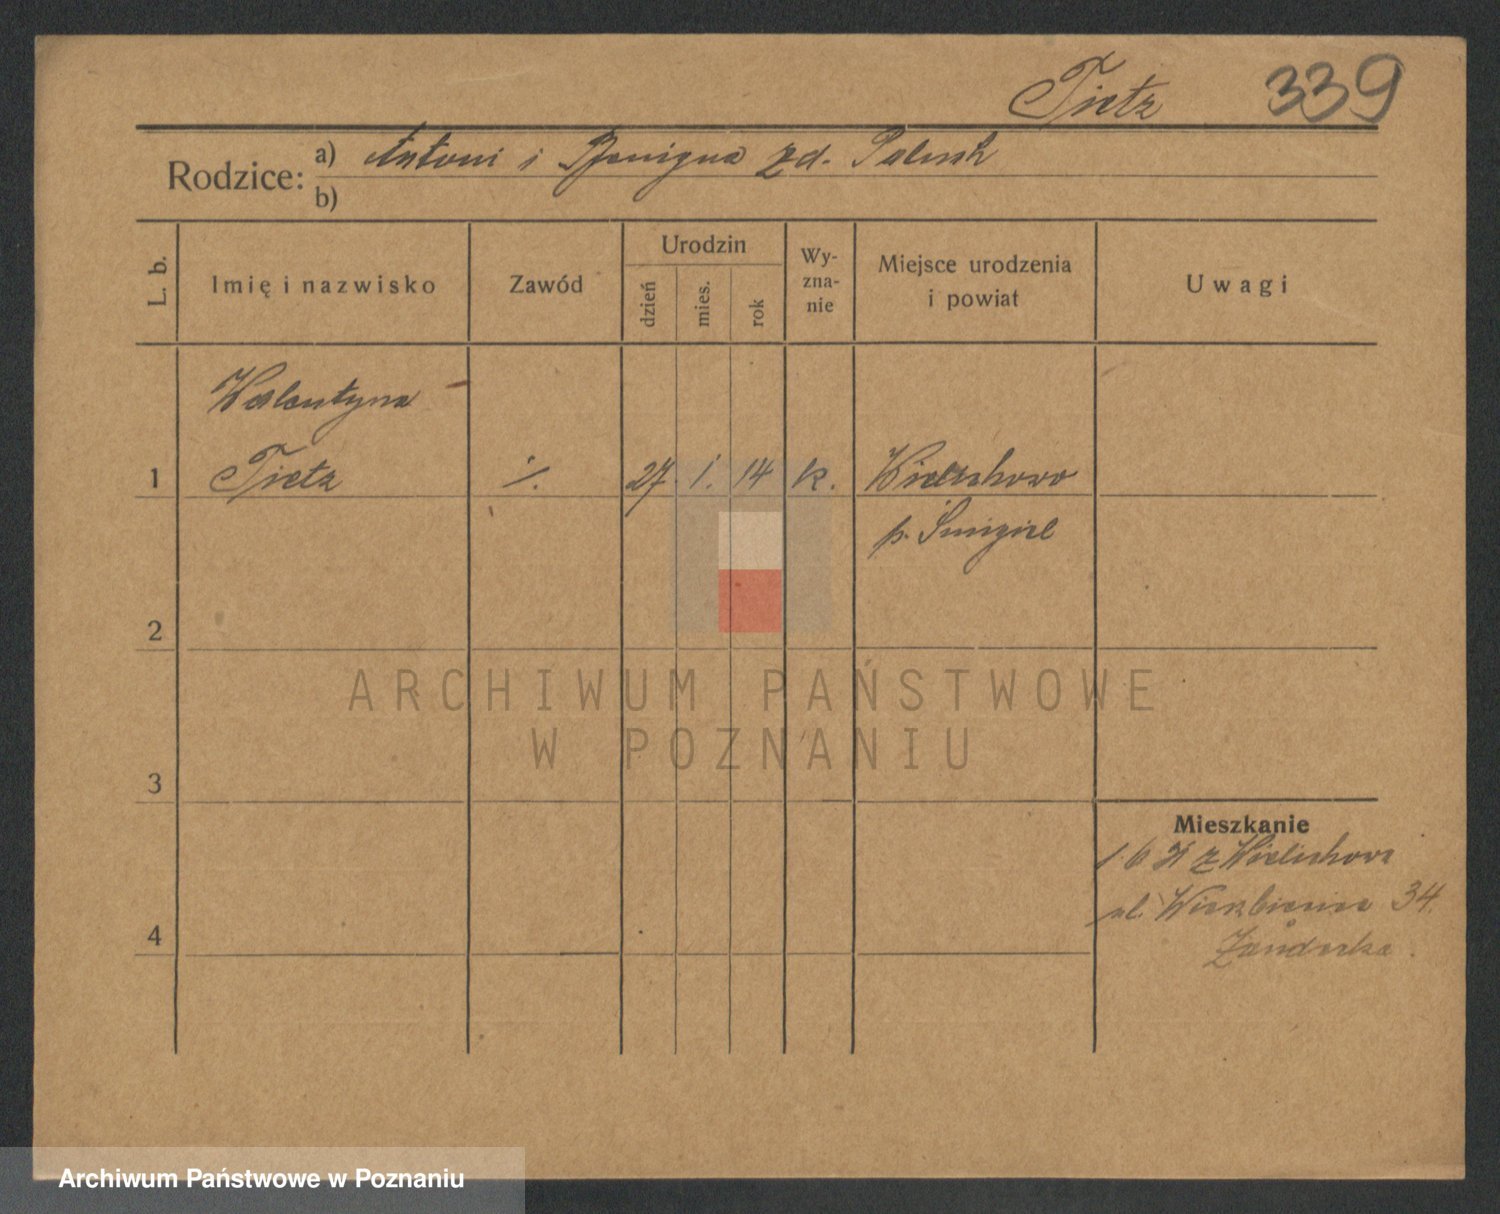 Tietz 339
Rodzice: a) Antoni i Benigna zd. Palush
b)
L. b.
Imię i nazwisko
Zawód
Urodzin
dzień
mies.
rok
Wy-
zna-
nie
Miejsce urodzenia
i powiat
Uwagi
Walentyna
1 Tietz ./. 27. 1. 14 k. Wielichowo
p. Śmigiel
2
3
4
Mieszkanie
z Wielichowa
ul. Wierzbięcice 34.
ARCHIWUM PAŃSTWOWE
W POZNANIU
Archiwum Państwowe w Poznaniu